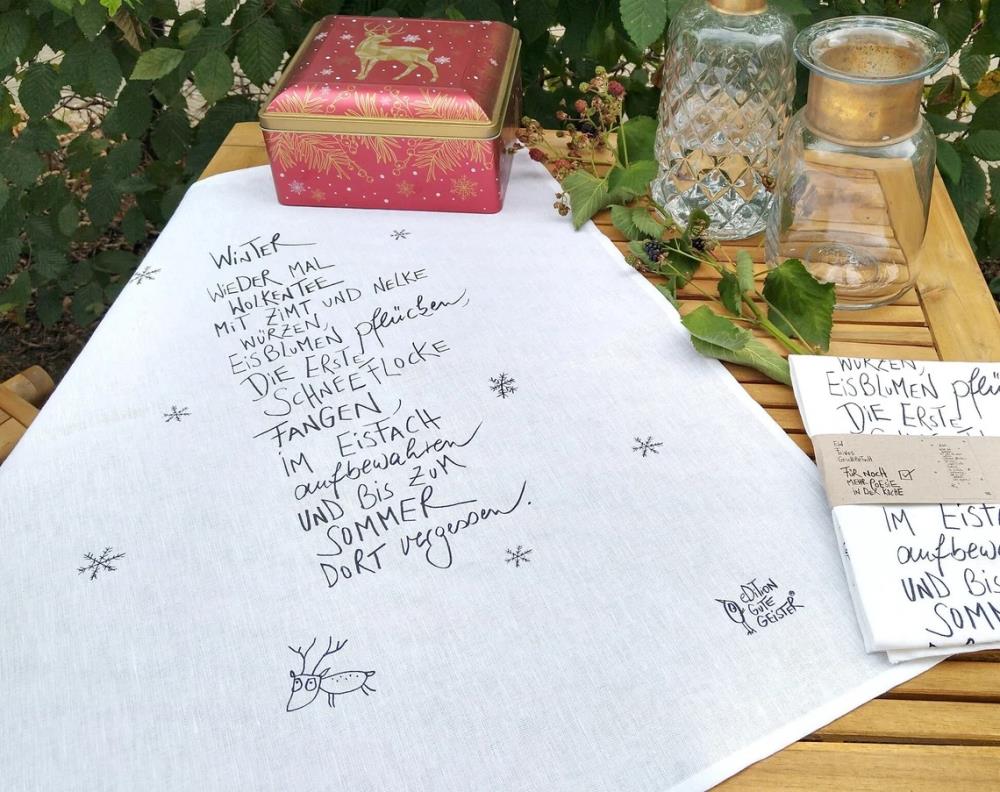 WINTER
WIEDER MAL
WOLKENTEE
MIT ZIMT UND NELKE
WÜRZEN,
EISBLUMEN pflücken,
DIE ERSTE
SCHNEEFLOCKE
FANGEN,
IM EISFACH
aufbewahren
UND BIS ZUM
SOMMER
DORT vergessen.
eDITION
GUTE
GEISTER®
WÜRZEN,
EISBLUMEN
DIE ERSTE
FÜR NOCH
MEHR POESIE
IN DER KÜCHE
IM
UND BIS